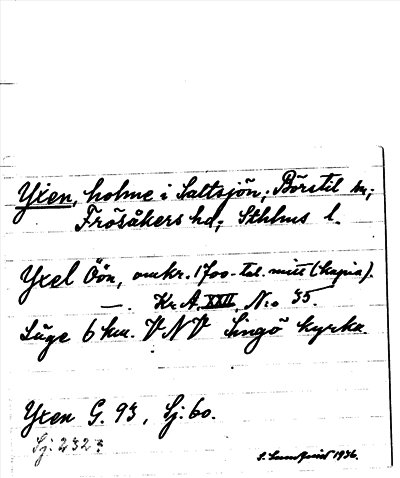 Yxen, holme i Saltsjön; Börstil sn;
Frösåkers hd; Sthlms l.
Yxel Öön, omkr. 1700-tal. mitt (kopia).
—. Kr. A. XXII, N:o 35.
Läge 6 km. VNV Singö kyrka.
Yxen G. 93, Sj: 60.
Sj: 232
S. Lundqvist 1936.